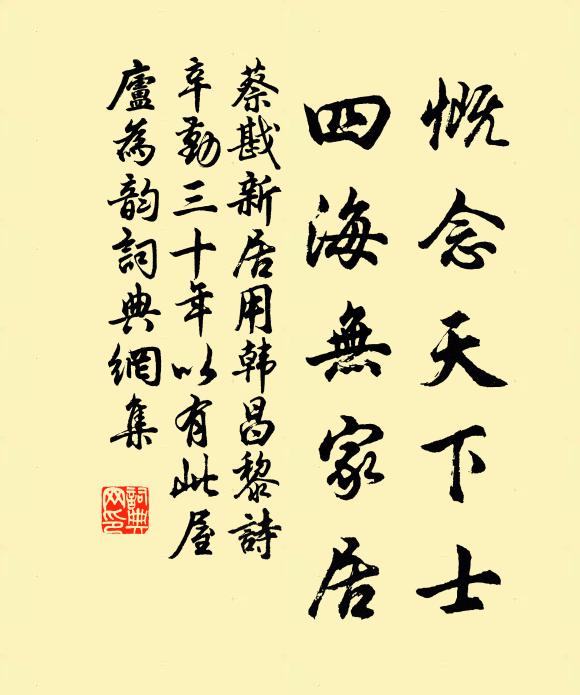 慨念天下士
四海無家居
蔡戡新居用韩昌黎詩
辛勤三十年以有此屋
廬為韵詞典網集
詞典
网印